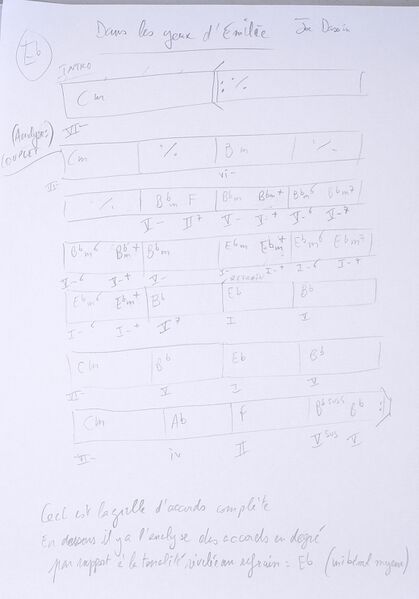 Dans les yeux d'Emilie Joe Dassin
Eb
INTRO
Cm :٪
VI-
(Analyse:)
COUPLET
Cm ٪ Bm ٪
VI- vi-
٪ Bbm F Bbm Bbm+ Bbm6 Bbm7
V- II7 V- V-+ V-6 V-7
Bbm6 Bbm+ Bbm Ebm Ebm+ Ebm6 Ebm7
V-6 V-+ V- I- I-+ I-6 I-7
REFRAIN
Ebm6 Ebm+ Bb Eb Bb
I-6 I-+ V7 I V
Cm Bb Eb Bb
VI- V I V
Cm Ab F Bbsus Bb :)
VI- iv II Vsus V
Ceci est la grille d'accords complète
En dessous il y a l'analyse des accords en degré
par rapport à la tonalité révélée au refrain : Eb (mi bémol majeur)